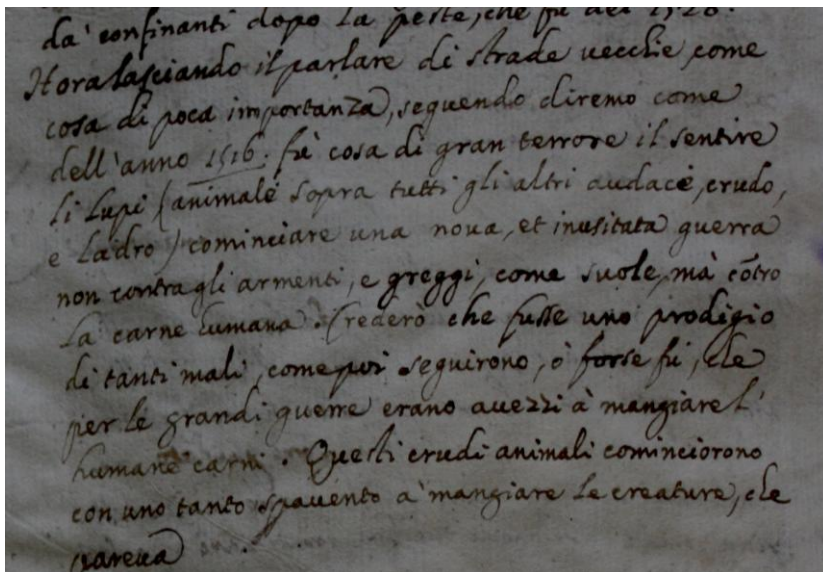 da' confinanti dopo la peste, che fù del 1528.
Hora lasciando il parlare di strade vecchie come
cosa di poca importanza, seguendo diremo come
dell'anno 1516. fù cosa di gran terrore il sentire
li lupi (animale sopra tutti gli altri audace, crudo,
e ladro) cominciare una nova, et inusitata guerra
non contra gli armenti, e greggi, come suole, mà cõtro
la carne humana. Crederò che fusse uno prodigio
di tanti mali, come poi seguirono, ò forse fù, che
per le grandi guerre erano auezzi à mangiare l'
humane carni. Questi crudi animali cominciorono
con uno tanto spauento a' mangiare le creature, che
pareua